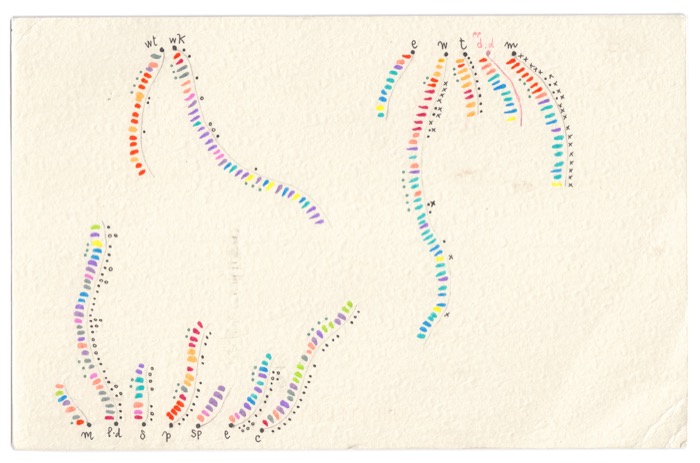 wt wk
e w t d:d m
m f:d s p sp e c